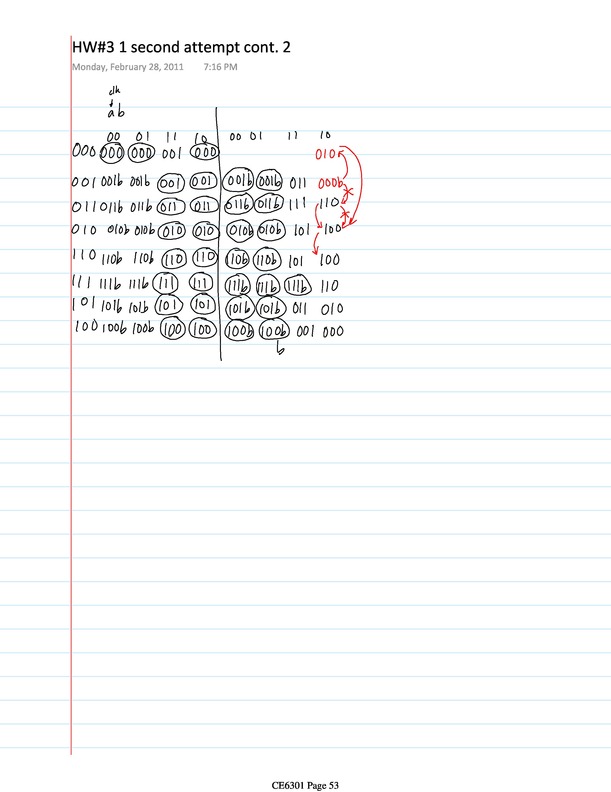 HW#3 1 second attempt cont. 2
Monday, February 28, 2011 7:16 PM
clk
ab
00 01 11 10 00 01 11 10
000 000 000 001 000 010
001 001b 001b 001 001 001b 001b 011 000b
011 011b 011b 011 011 011b 011b 111 110
010 010b 010b 010 010 010b 010b 101 100
110 110b 110b 110 110 110b 110b 101 100
111 111b 111b 111 111 111b 111b 111b 110
101 101b 101b 101 101 101b 101b 011 010
100 100b 100b 100 100 100b 100b 001 000
b
CE6301 Page 53